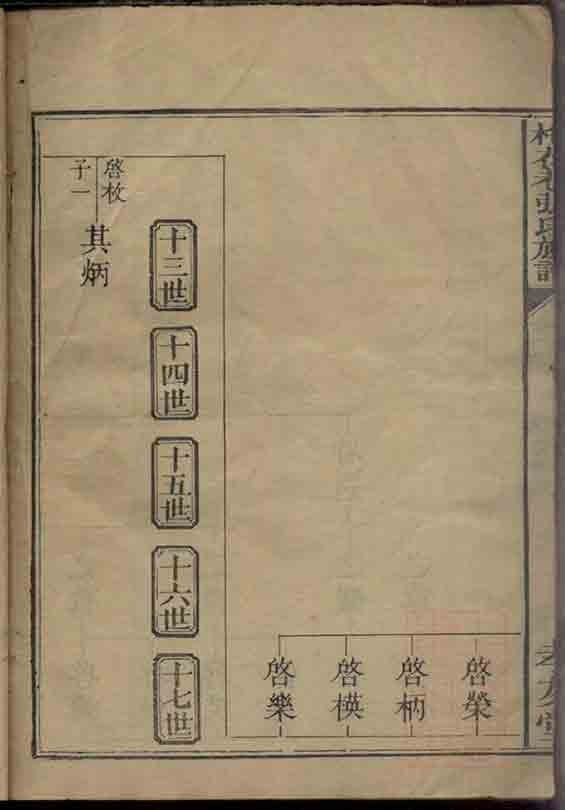 張氏族譜
啓榮
啓柄
啓模
啓樂
十三世
十四世
十五世
十六世
十七世
啓枚
子一
其炳